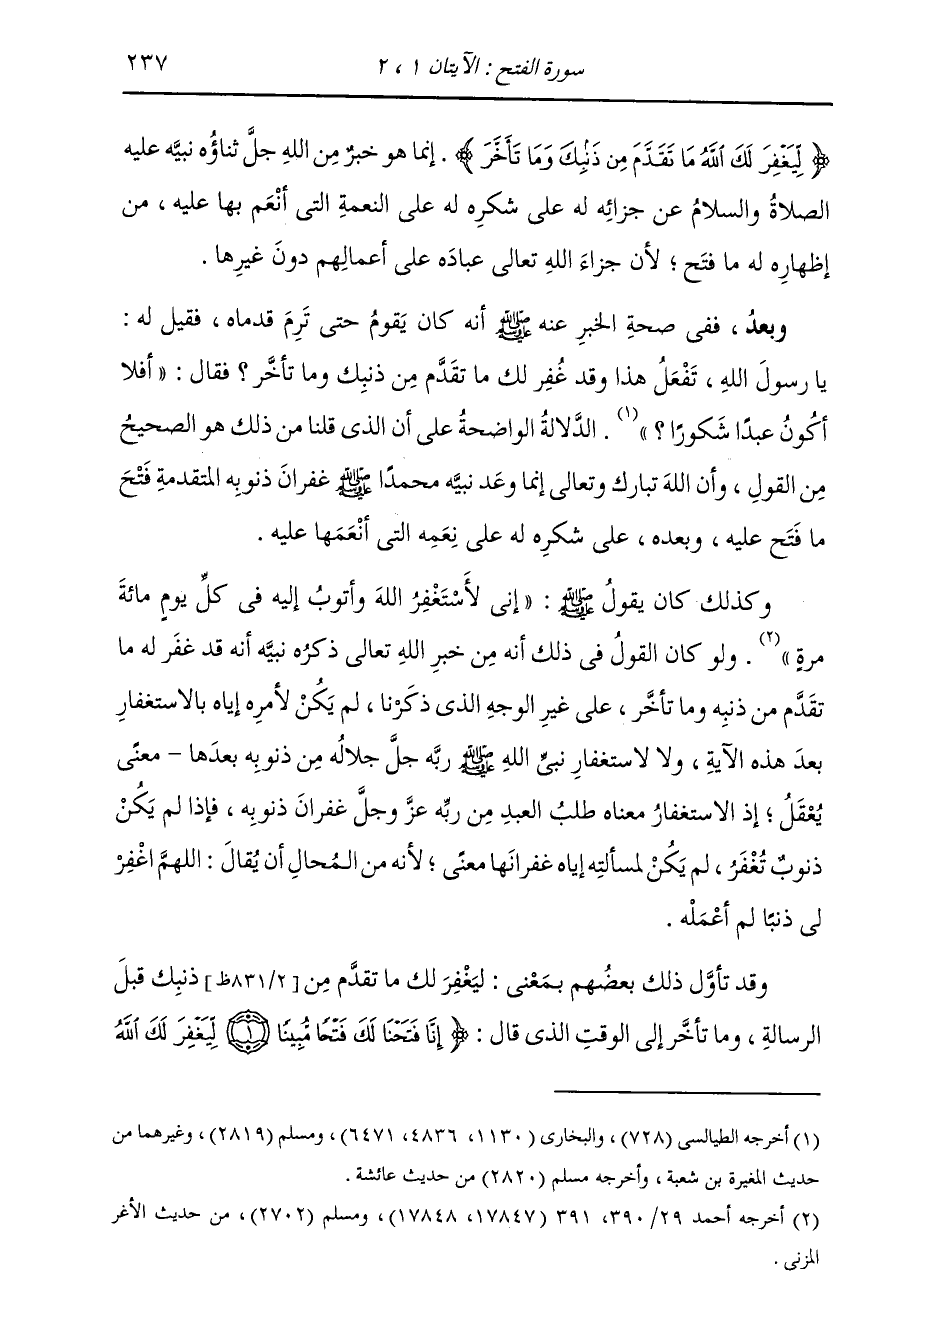 سورة الفتح : الآيتان ١ ، ٢
٢٣٧
﴿ لِّيَغْفِرَ لَكَ ٱللَّهُ مَا تَقَدَّمَ مِن ذَنۢبِكَ وَمَا تَأَخَّرَ ﴾ . إنما هو خبرٌ مِن اللهِ جلَّ ثناؤُه نبيَّه عليه
الصلاةُ والسلامُ عن جزائِه له على شكرِه له على النعمةِ التى أنْعَم بها عليه ، من
إظهارِه له ما فتَح ؛ لأن جزاءَ اللهِ تعالى عبادَه على أعمالِهم دونَ غيرِها .
وبعدُ ، ففى صحةِ الخبرِ عنه ﷺ أنه كان يَقومُ حتى تَرِمَ قدماه ، فقيل له :
يا رسولَ اللهِ ، تَفْعَلُ هذا وقد غُفِر لك ما تقدَّم مِن ذنبِك وما تأخَّر ؟ فقال : « أفلا
أكُونُ عبدًا شَكورًا ؟ »(١) . الدَّلالةُ الواضحةُ على أن الذى قلنا من ذلك هو الصحيحُ
مِن القولِ ، وأن اللهَ تبارك وتعالى إنما وعَد نبيَّه محمدًا ﷺ غفرانَ ذنوبِه المتقدمةِ فَتْحَ
ما فَتَح عليه ، وبعده ، على شكرِه له على نِعَمِه التى أنْعَمَها عليه .
وكذلك كان يقولُ ﷺ : « إنى لأَسْتَغْفِرُ اللهَ وأتوبُ إليه فى كلِّ يومٍ مائةَ
مرةٍ »(٢) . ولو كان القولُ فى ذلك أنه مِن خبرِ اللهِ تعالى ذكرُه نبيَّه أنه قد غفَر له ما
تقَدَّم من ذنبِه وما تأخَّر ، على غيرِ الوجهِ الذى ذكَرْنا ، لم يَكُنْ لأمرِه إياه بالاستغفارِ
بعدَ هذه الآيةِ ، ولا لاستغفارِ نبىِّ اللهِ ﷺ ربَّه جلَّ جلالُه مِن ذنوبِه بعدَها - معنًى
يُعْقَلُ ؛ إذ الاستغفارُ معناه طلبُ العبدِ مِن ربِّه عزَّ وجلَّ غفرانَ ذنوبِه ، فإذا لم يَكُنْ
ذنوبٌ تُغْفَرُ ، لم يَكُنْ لمسألتِه إياه غفرانَها معنًى ؛ لأنه من المُحالِ أن يُقالَ : اللهمَّ اغْفِرْ
لى ذنبًا لم أعْمَلْه .
وقد تأوَّل ذلك بعضُهم بمَعْنى : ليَغْفِرَ لك ما تقدَّم مِن [٨٣١/٢ظ] ذنبِك قبلَ
الرسالةِ ، وما تأخَّر إلى الوقتِ الذى قال : ﴿ إِنَّا فَتَحْنَا لَكَ فَتْحًا مُّبِينًا ۝١ لِّيَغْفِرَ لَكَ ٱللَّهُ
(١) أخرجه الطيالسى (٧٢٨) ، والبخارى (١١٣٠، ٤٨٣٦، ٦٤٧١) ، ومسلم (٢٨١٩) ، وغيرهما من
حديث المغيرة بن شعبة ، وأخرجه مسلم (٢٨٢٠) من حديث عائشة .
(٢) أخرجه أحمد ٢٩/ ٣٩٠، ٣٩١ (١٧٨٤٧، ١٧٨٤٨) ، ومسلم (٢٧٠٢) ، من حديث الأغر
المزنى .